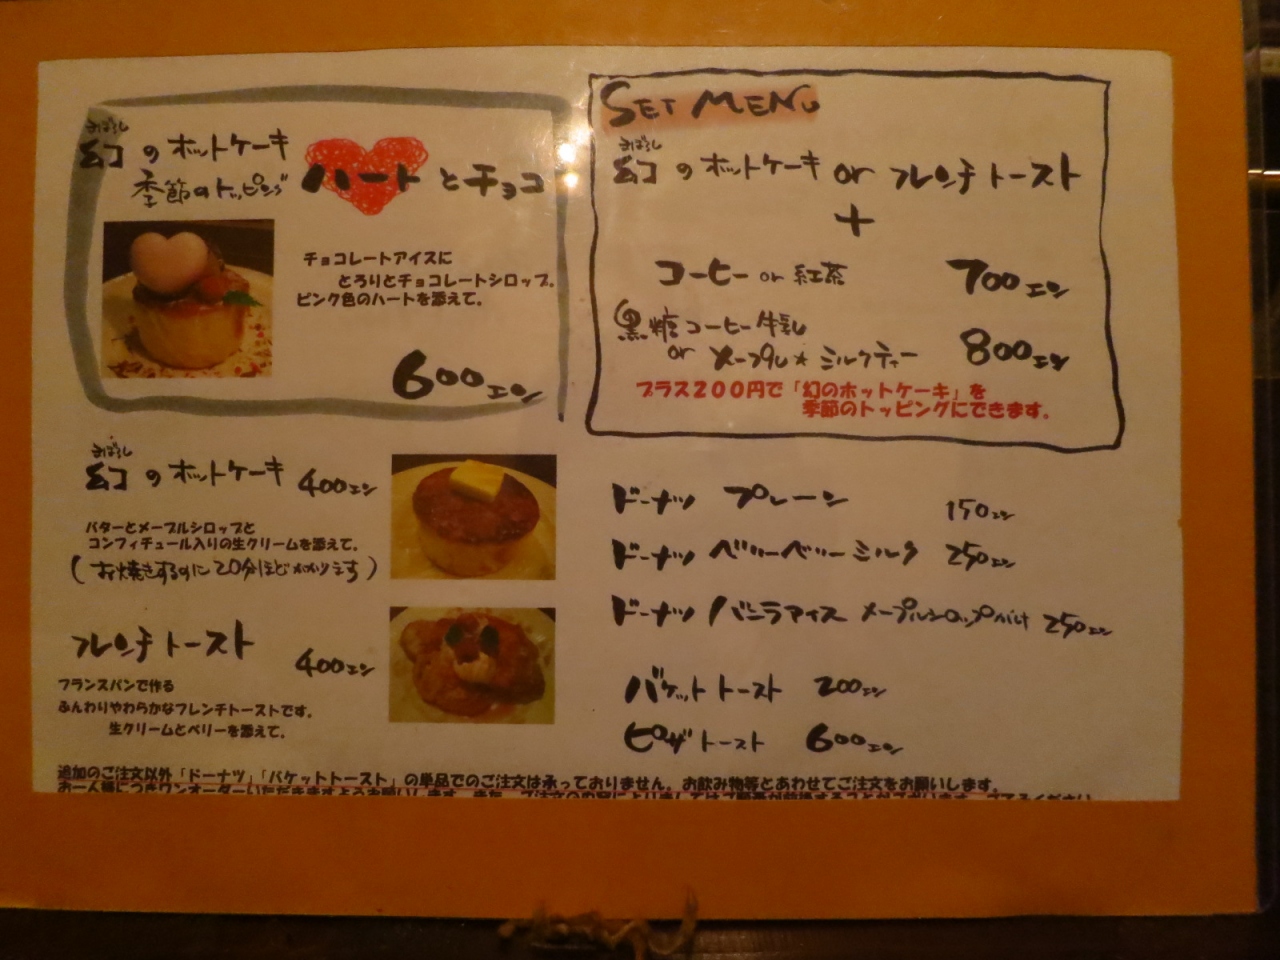 まぼろし
幻のホットケーキ
季節のトッピング ハートとチョコ
チョコレートアイスに
とろりとチョコレートシロップ。
ピンク色のハートを添えて。
600エン
まぼろし
幻のホットケーキ 400エン
バターとメープルシロップと
コンフィチュール入りの生クリームを添えて。
(お焼きするのに20分ほどかかります)
フレンチトースト 400エン
フランスパンで作る
ふんわりやわらかなフレンチトーストです。
生クリームとベリーを添えて。
SET MENU
まぼろし
幻のホットケーキ or フレンチトースト
+
コーヒー or 紅茶 700エン
黒糖コーヒー牛乳
or メープル★ミルクティー 800エン
プラス200円で「幻のホットケーキ」を
季節のトッピングにできます。
ドーナツ プレーン 150エン
ドーナツ ベリーベリーミルク 250エン
ドーナツ バニラアイス メープルシロップがけ 250エン
バケットトースト 200エン
ピザトースト 600エン
追加のご注文以外「ドーナツ」「バケットトースト」の単品でのご注文は承っておりません。お飲み物等とあわせてご注文をお願いします。
お一人様につきワンオーダーいただきますようお願いします。また、ご注文の内容によりましてはご順番が前後することがございます。